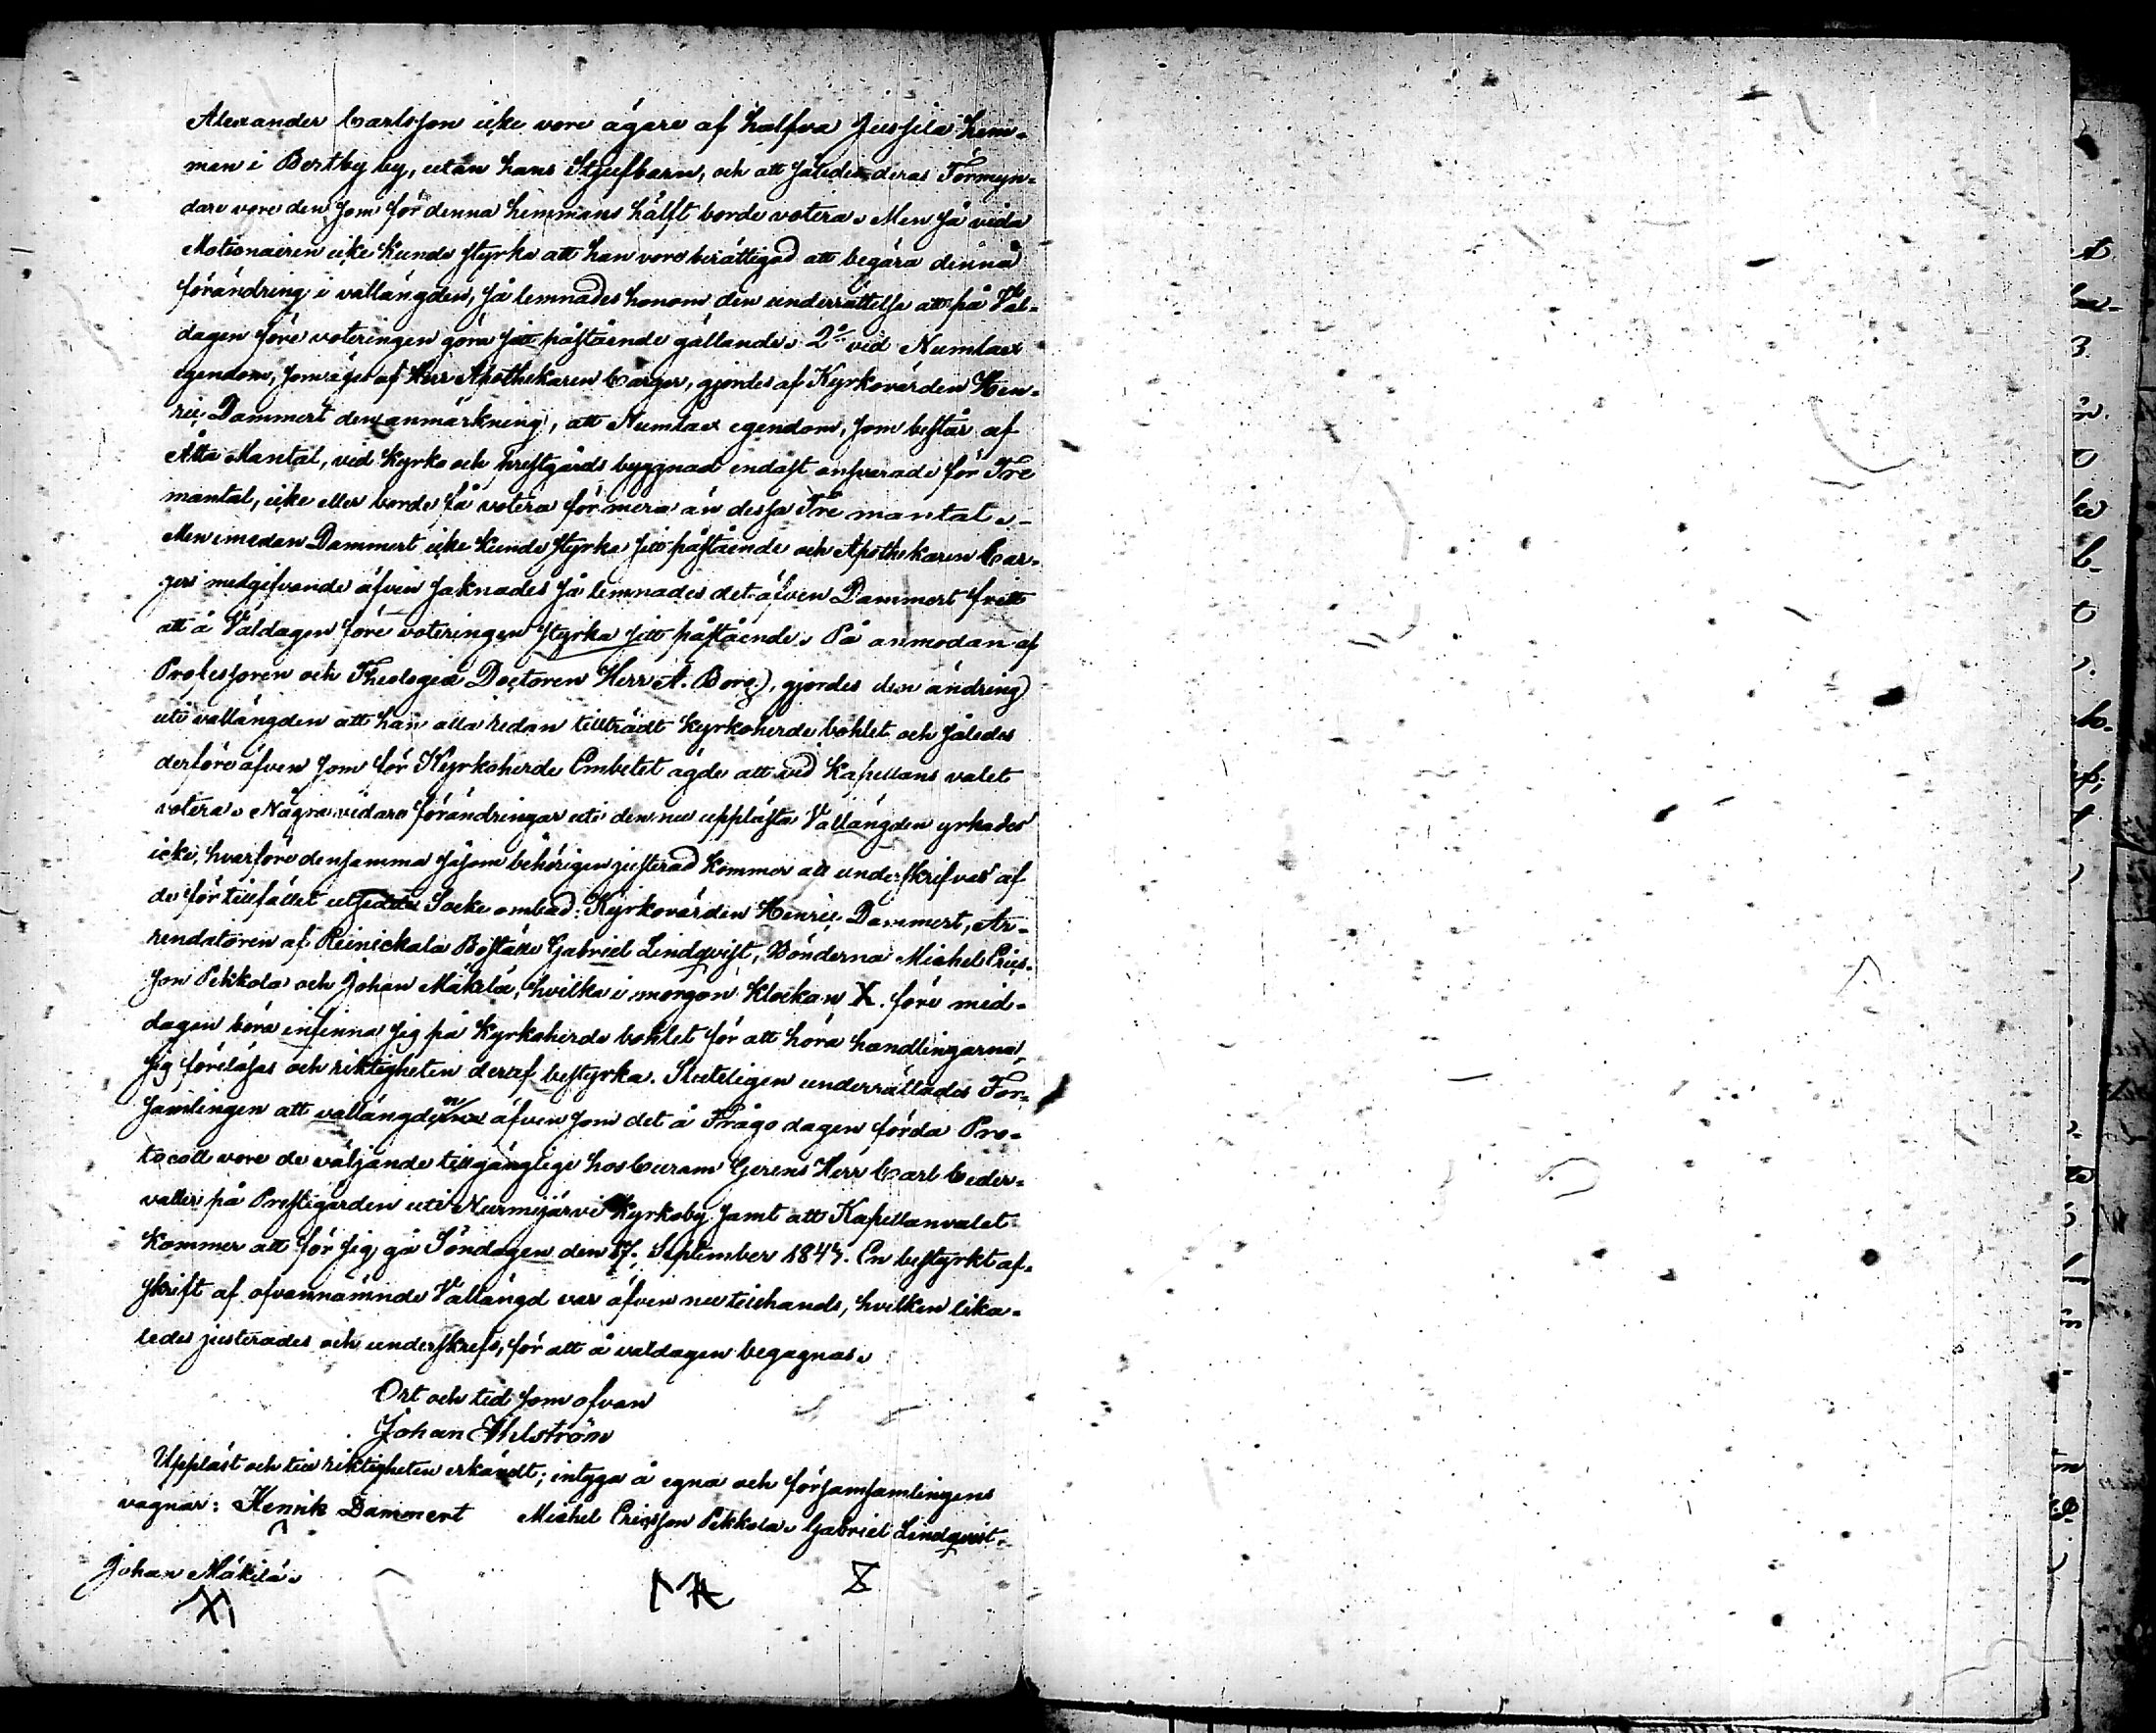 Alexander Carlsson icke vore ägare af halfva Jussila hem-
man i Bertby by, utan hans Styfbarn, och att således deras Förmyn-
dare vore den som för denna hemmans hälft borde votera. Men så vida
Motionairen icke kunde styrka att han vore berättigad att begära denna
förändring i vallängden, så lemnades honom den underrättelse att på Val-
dagen före voteringen göra sitt påstående gällande. 2o vid Numlax
egendom, som äges af Herr Apothekaren Carger, gjordes af Kyrkovärden Hen-
ric Dammert den anmärkning, att Numlax egendom, som består af
Åtta Mantal, vid Kyrko och Prestgårds byggnad endast ansvarade för Tre
mantal, icke eller borde få votera för mera än dessa Tre mantal. -
Men imedan Dammert icke kunde styrka sitt påstående och Apothekaren Car-
gers medgifvande äfven saknades så lemnades det äfven Dammert fritt
att å Valdagen före voteringen styrka sitt påstående. På anmodan af
Professoren och Theologiæ Doctoren Herr A. Borg, gjordes den ändring
uti vallängden att han alla redan tillträdt kyrkoherde bohlet och således
derföre äfven som för Kyrkoherde Embetet ägde att vid Kapellans valet
votera. Några vidare förändringar uti den nu upplästa Vallängden yrkades
icke, hvarföre densamma såsom behörigen justerad kommer att underskrifvas af
de för tillfället utsedda Socke ombud: Kyrkovärden Henric Dammert, Ar-
rendatoren af Reinickala Boställe Gabriel Lindqvist, Bönderna Michel Erics-
son Pekkola och Johan Mäkilä, hvilka i morgon klockan X. före mid-
dagen böra infinna sig på Kyrkoherde bohlet för att höra handlingarna
sig föreläsas och riktigheten deraf bestyrka. Sluteligen underrättades För-
samlingen att vallängden äfven som det å Frågo dagen förda Pro-
tocoll vore de väljande tillgänglige hos Curam Gerens Herr Carl Ceder-
valler på Prestegården uti Nurmijärvi Kyrkoby samt att Kapellanvalet
kommer att för sig gå Söndagen den 17. September 1843. En bestyrkt af-
skrift af ofvannämnde Vallängd var äfven nu tillhands, hvilken lika-
ledes justerades och underskrefs, för att å valdagen begagnas.
Ort och tid som ofvan
Johan Ahlström
Uppläst och till riktigheten erkändt; intyga å egna och församsamlingens
vägnar: Henrik Dammert Michel Ericsson Pekkola. Gabriel Lindqvist.
Johan Mäkilä.